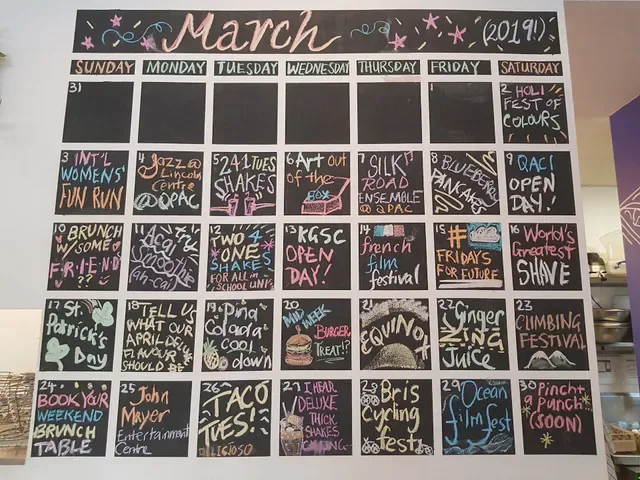 March (2019!)
SUNDAY MONDAY TUESDAY WEDNESDAY THURSDAY FRIDAY SATURDAY
31
1
2 HOLI
FEST OF
COLOURS
3 INT'L
WOMENS'
FUN RUN
4 Jazz @
Lincoln
Centre
@QPAC
5 241 TUES
SHAKES
6 Art out
of the
BOX
7 SILK
ROAD
ENSEMBLE
@ QPAC
8 BLUEBERRY
PANCAKES
9 QACI
OPEN
DAY!
10 BRUNCH
W/SOME
FRIEND
??
11 Açaí
Smoothie
(ah-cai)
12 TWO 4
ONE
SHAKES
FOR ALL in
SCHOOL UNI
13 KGSC
OPEN
DAY!
14 french
film
festival
15 #
FRIDAYS
FOR FUTURE
16 World's
Greatest
SHAVE
17 St.
Patrick's
Day
18 TELL US
WHAT OUR
APRIL
FLAVOUR
SHOULD BE
19 Pina
Colada
cool
down
20 MID WEEK
BURGER
TREAT!?
21
EQUINOX
22 Ginger
ZING
Juice
23
CLIMBING
FESTIVAL
24
BOOK YOUR
WEEKEND
BRUNCH
TABLE
25
John
Mayer
Entertainment
Centre
26
TACO
TUES!
27 I HEAR
DELUXE
THICK
SHAKES
CALLING
28 Bris
Cycling
fest
29 Ocean
film fest
30 Pinch +
a punch
(SOON)